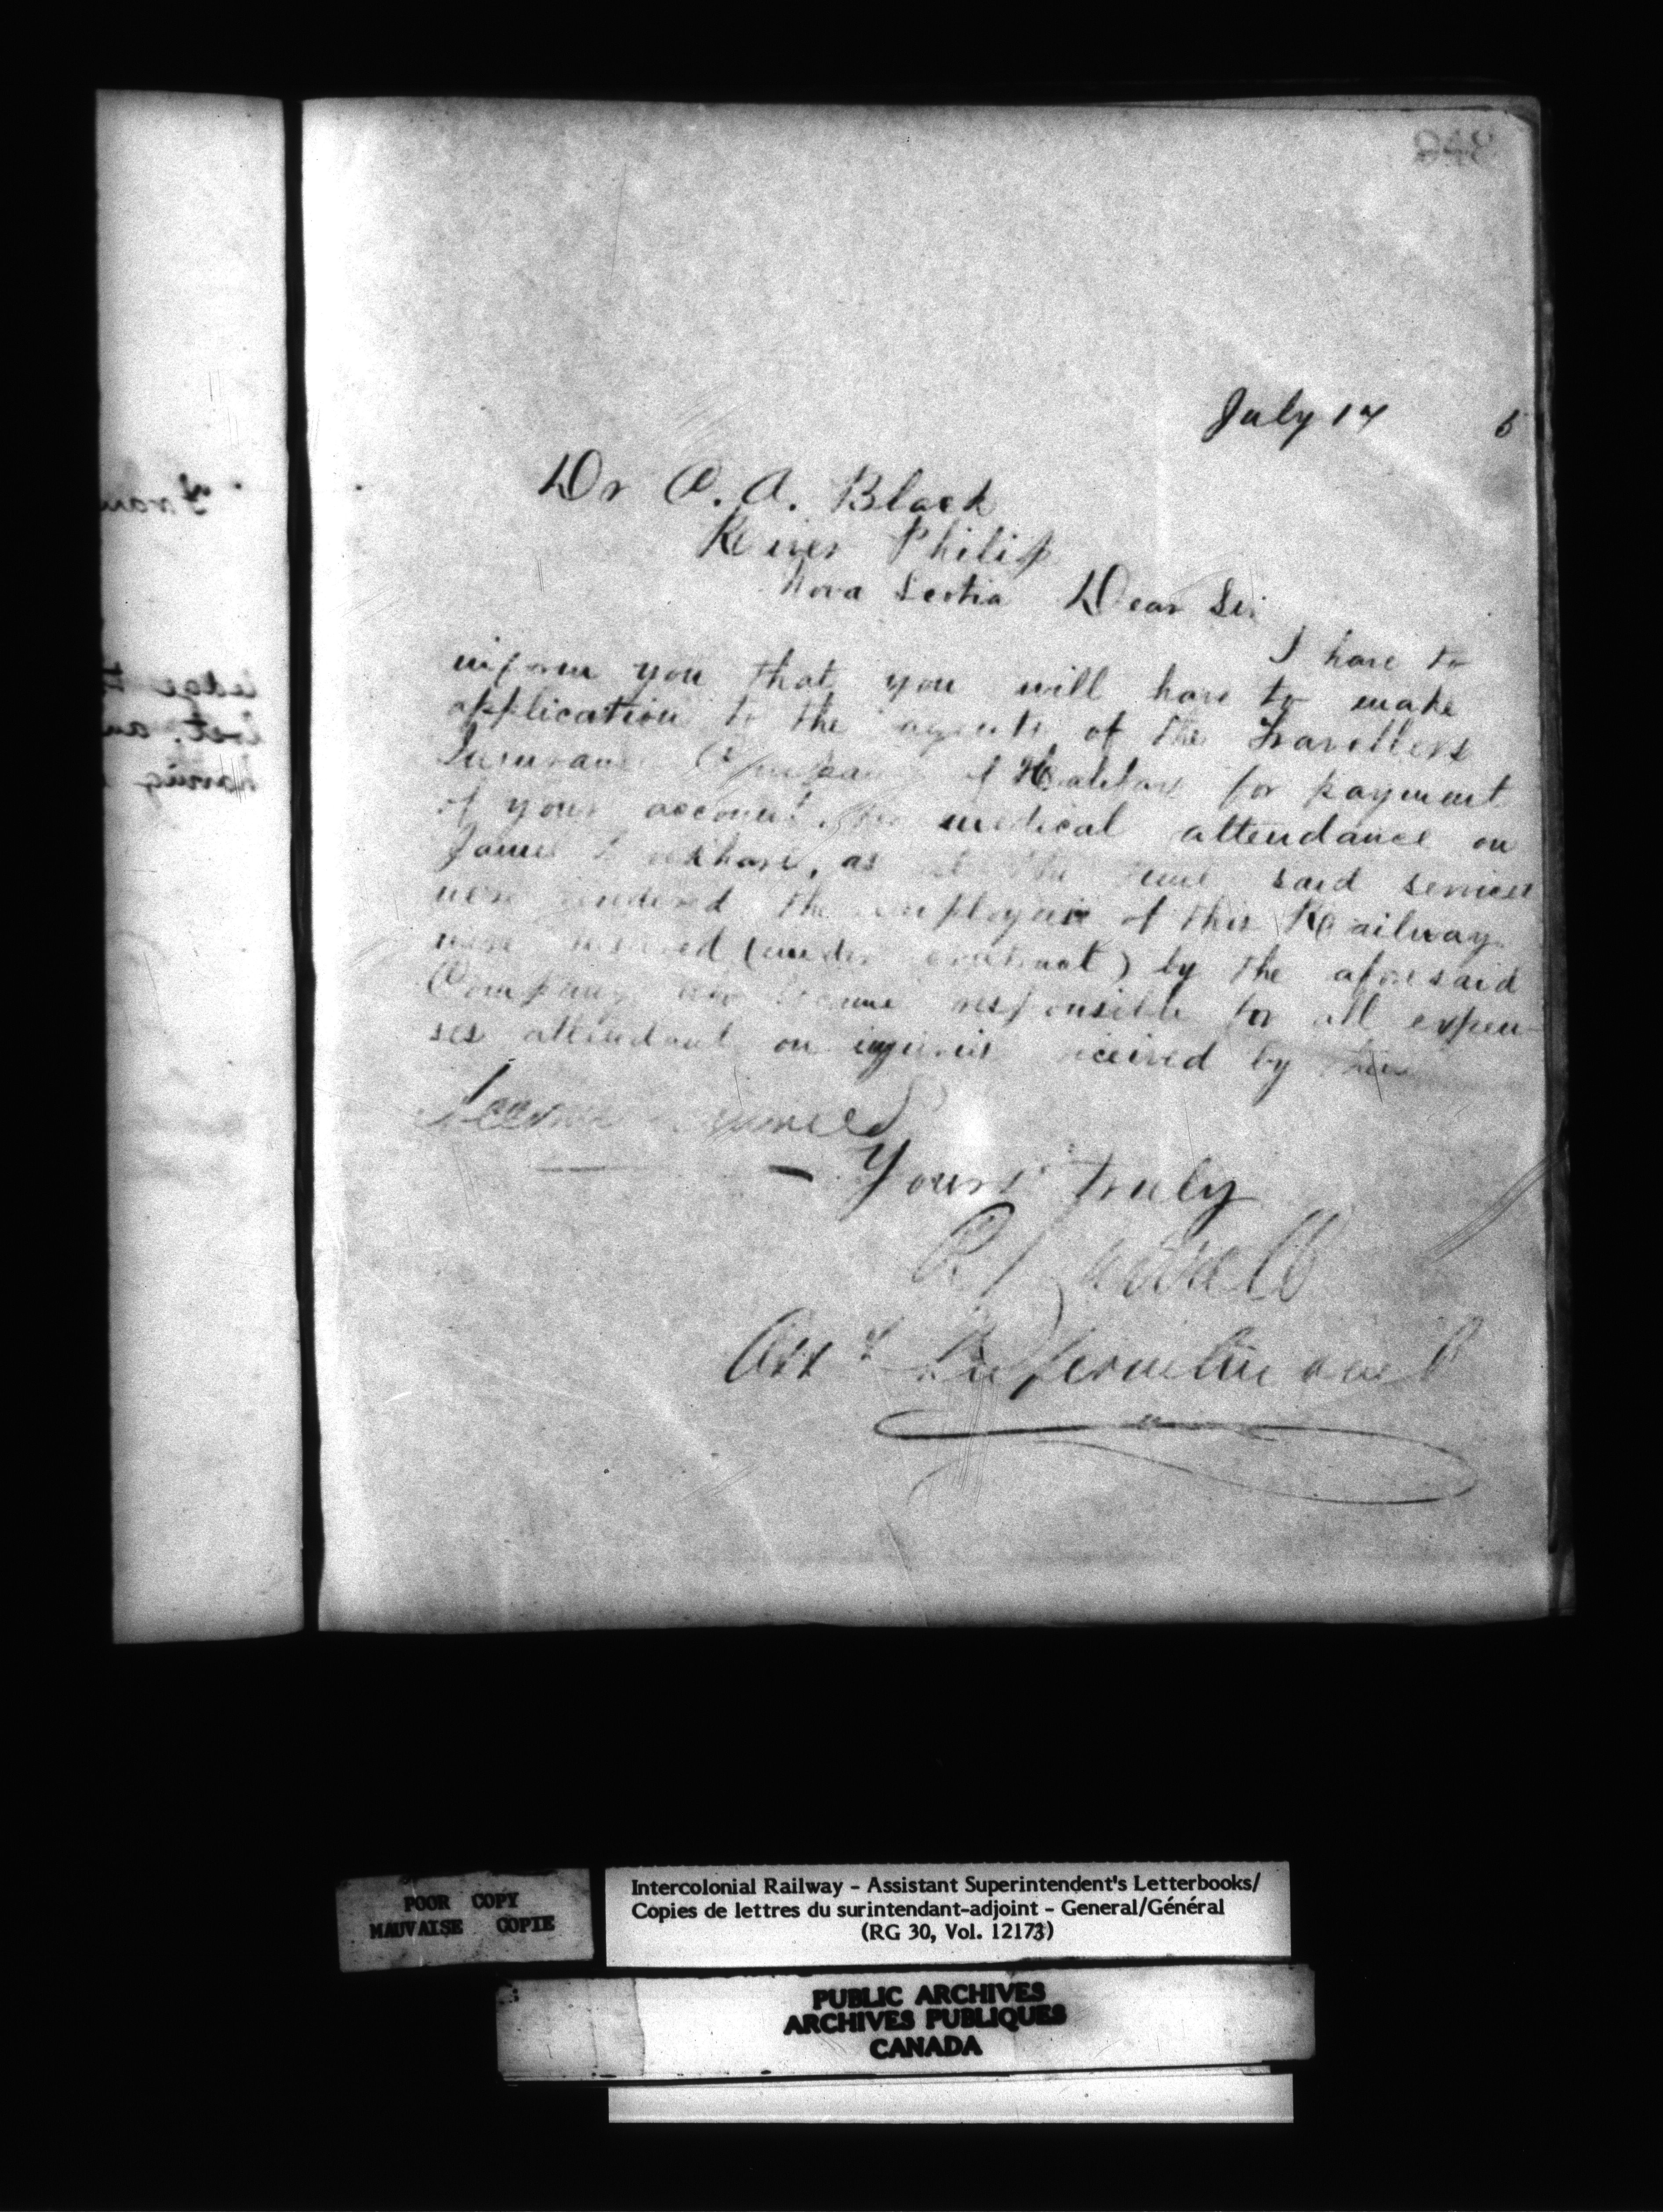 948
July 17 5
Dr C. A. Black
River Philip
Nova Scotia Dear Sir
I have to
inform you that you will have to make
application to the agents of the Travellers
Insurance Company of Halifax for payment
of your account for medical attendance on
James as at the time said services
were rendered the employees of this Railway
were insured (under contract) by the aforesaid
Company who became responsible for all expen-
ses attendant on injuries received by
Yours truly
Asst Superintendent
POOR COPY
MAUVAISE COPIE
Intercolonial Railway - Assistant Superintendent's Letterbooks/
Copies de lettres du surintendant-adjoint - General/Général
(RG 30, Vol. 12173)
PUBLIC ARCHIVES
ARCHIVES PUBLIQUES
CANADA